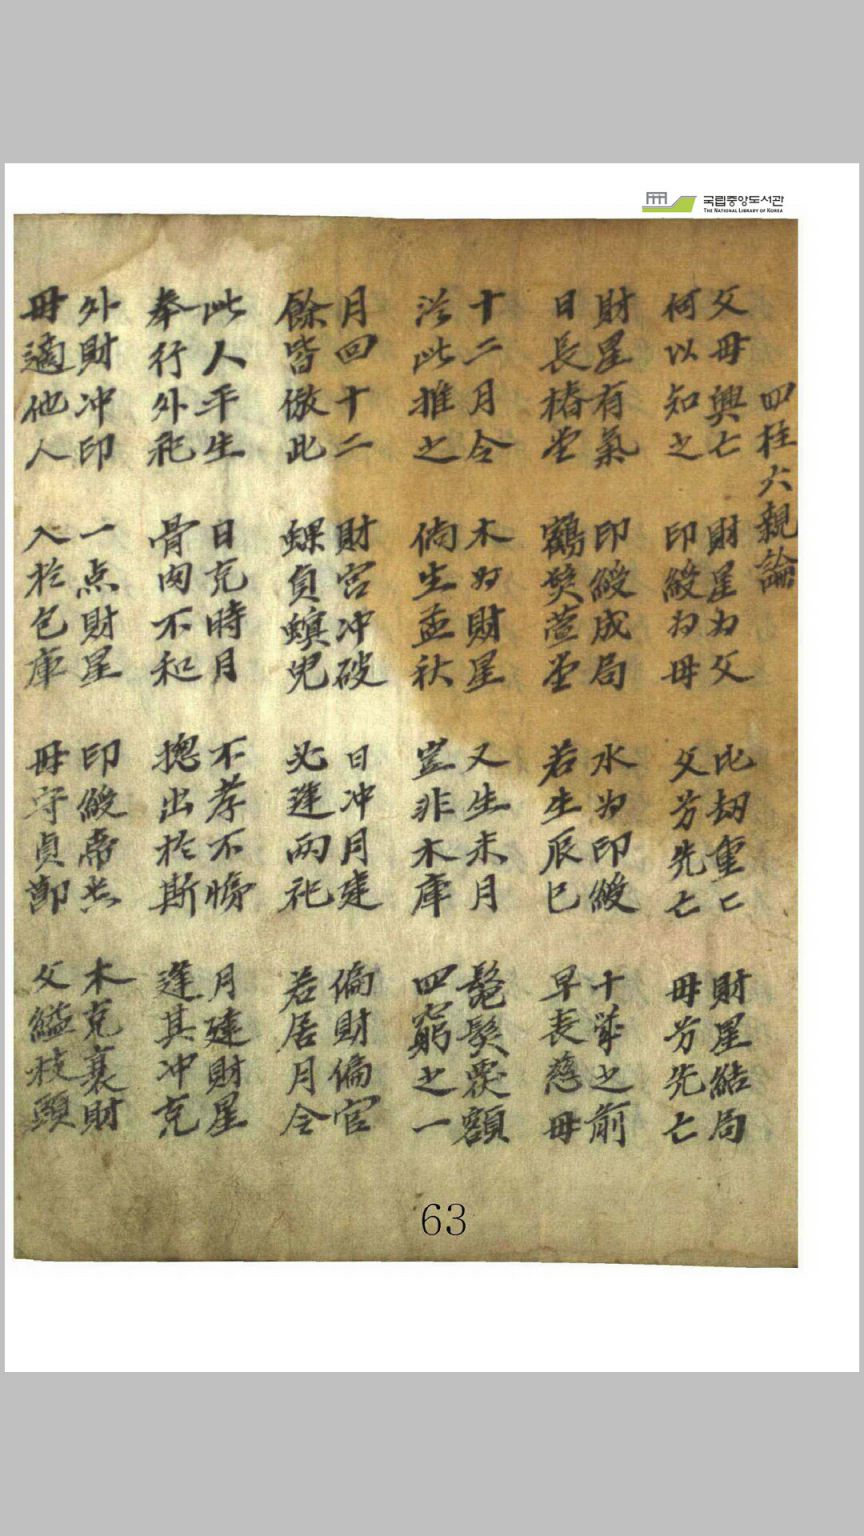 국립중앙도서관
THE NATIONAL LIBRARY OF KOREA
四柱六親論
父母興亡 財星为父 比劫重匕 財星結局
何以知之 印綬为母 父芳先亡 母芳先亡
財星有氣 印綬成局 水为印綬 十歲之前
日長椿堂 鶴髮萱堂 若生辰巳 早喪慈母
十二月令 木为財星 又生未月 髧髮覆額
法此推之 倘生孟秋 豈非木庫 四窮之一
月回十二 財宮冲破 日冲月建 偏財偏官
餘皆倣此 螺負螟兒 必逢兩祀 若居月令
此人平生 日克時月 不孝不悌 月建財星
奉行外祀 骨肉不和 摠出於斯 逢其冲克
外財冲印 一点財星 印綬帶煞 木克衰財
母適他人 入於包庫 母守貞節 父縊枝頭
63